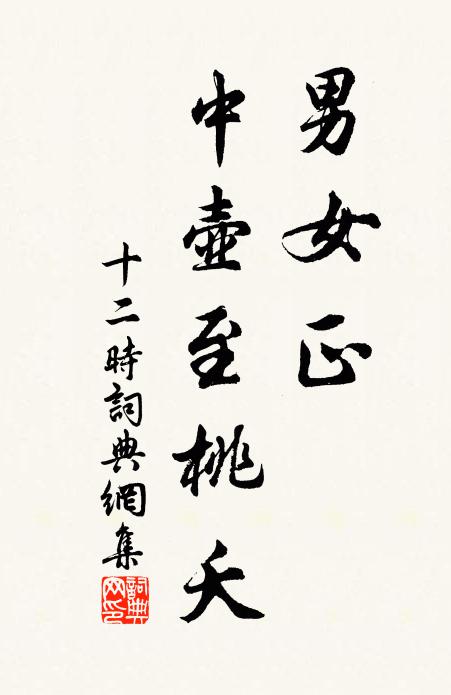 男女正
中壺至桃夭
十二時詞典網集
詞典
网印